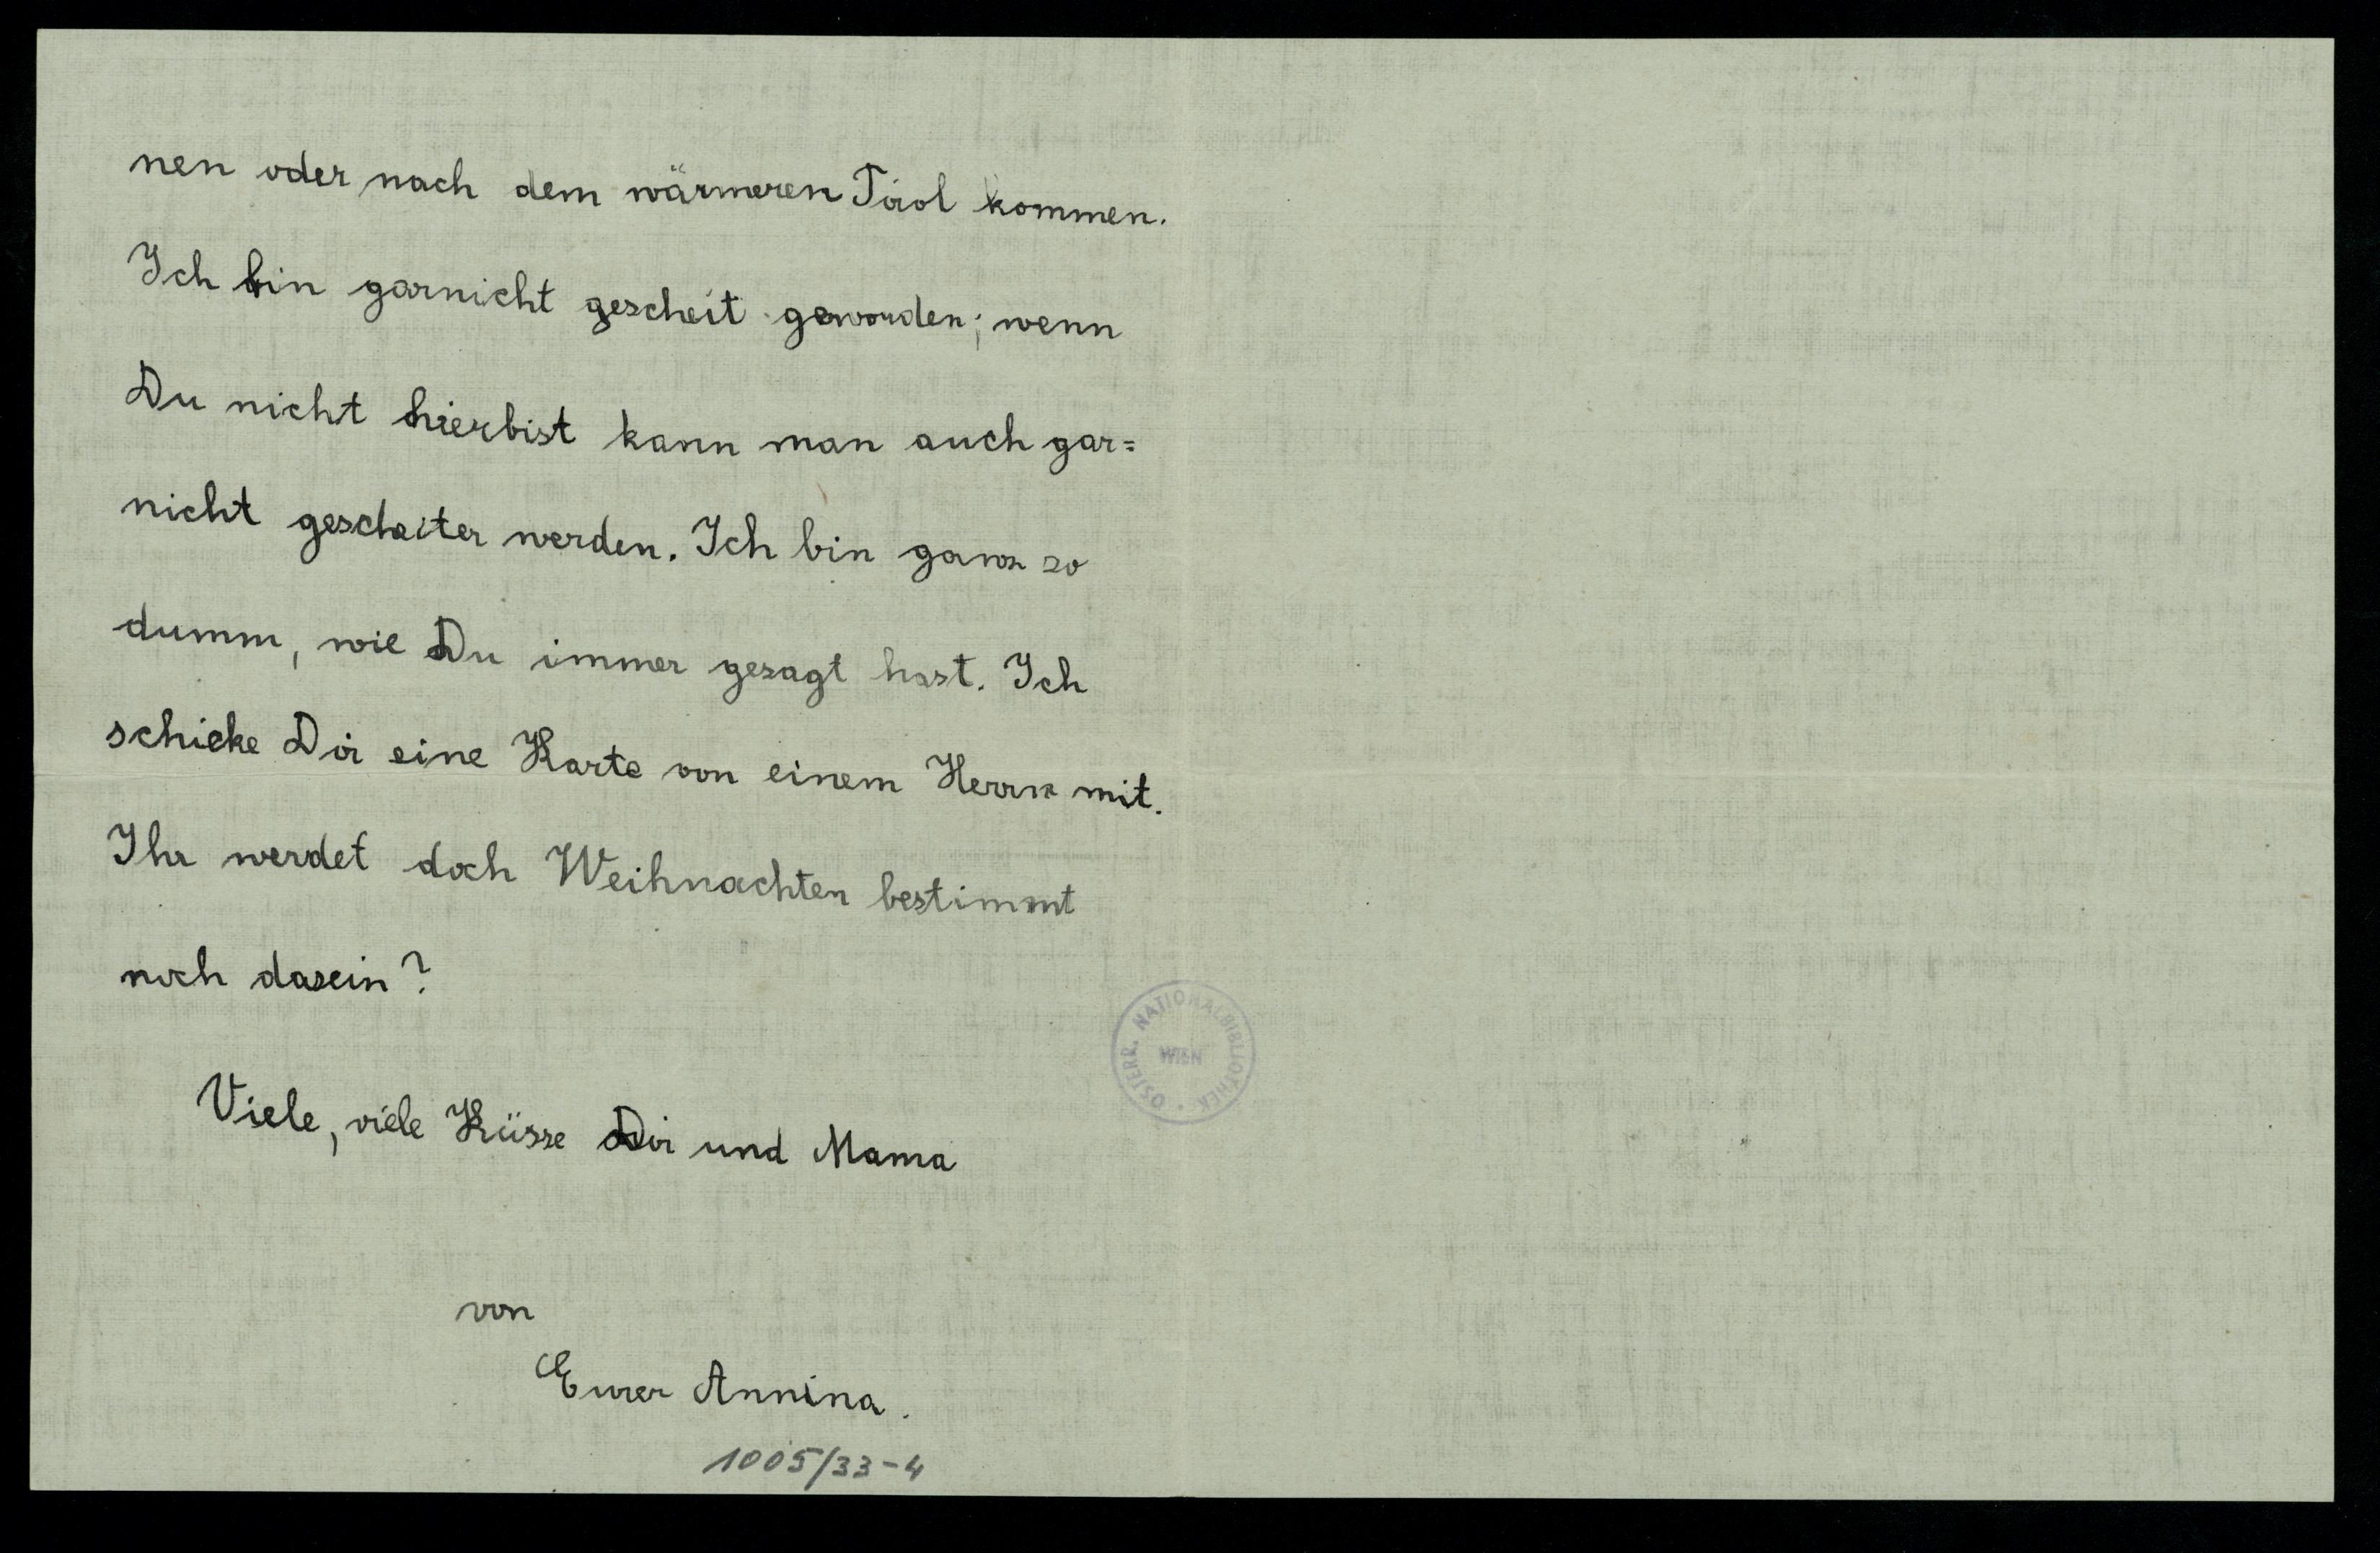 nen oder nach dem wärmeren Tirol kommen.
Ich bin garnicht gescheit geworden; wenn
Du nicht hierbist kann man auch gar=
nicht gescheiter werden. Ich bin ganz so
dumm, wie Du immer gesagt hast. Ich
schicke Dir eine Karte von einem Herrn mit.
Ihr werdet doch Weihnachten bestimmt
noch dasein?
ÖSTERR. NATIONALBIBLIOTHEK
WIEN
Viele, viele Küsse Dir und Mama
von
Eurer Annina.
1005/33-4